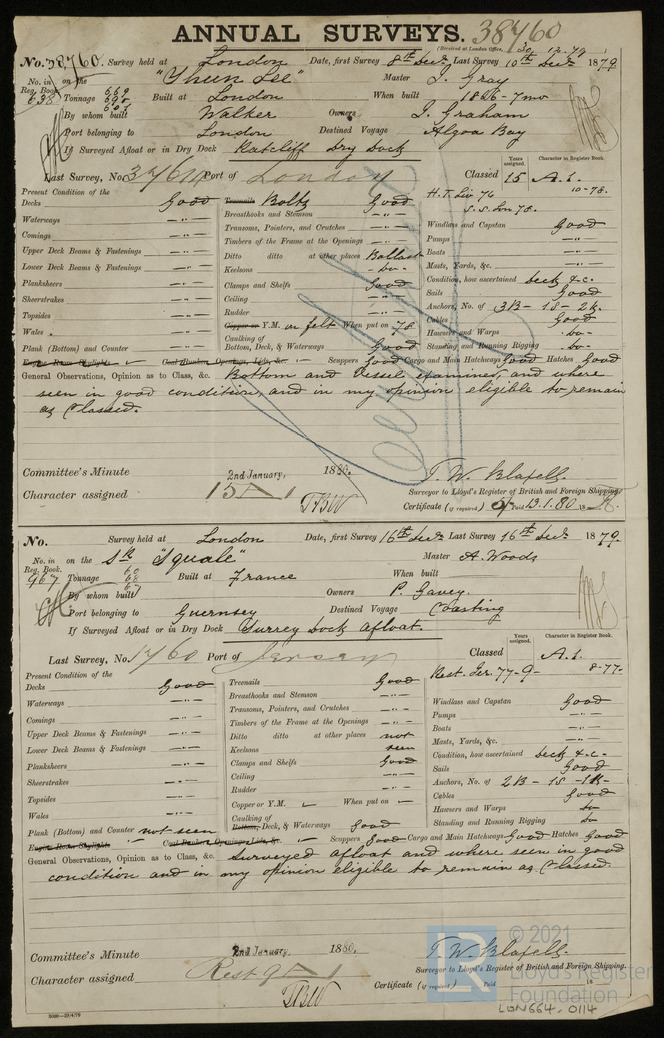 ANNUAL SURVEYS. 38760
(Received at London Office, 30.12.79)
No. 38760. Survey held at London Date, first Survey 8th Decr Last Survey 10th Decr 1879
No. in Reg. Book. on the Master J. Gray
638 Tonnage 669 Built at London When built 1866-7mo
By whom built Walker Owners J. Graham
Port belonging to London Destined Voyage Algoa Bay
If Surveyed Afloat or in Dry Dock Ratcliff Dry Dock
Years assigned. Character in Register Book.
Last Survey, No. Port of London Classed 15 A.1. 10-78.
Present Condition of the
Decks Good Treenails Bolts Good
Waterways —"— Breasthooks and Stemson —"— Windlass and Capstan Good
Comings —"— Transoms, Pointers, and Crutches —"— Pumps —"—
Upper Deck Beams & Fastenings —"— Timbers of the Frame at the Openings —"— Boats —"—
Lower Deck Beams & Fastenings —"— Ditto ditto at other places Ballast Masts, Yards, &c. —"—
Planksheers —"— Keelsons —do— Condition, how ascertained Deck &c.
Sheerstrakes —"— Clamps and Shelfs Good Sails Good
Topsides —"— Ceiling —"— Anchors, No. of 3B - 1S - 2K.
Wales —"— Rudder —"— Cables Good
Copper or Y.M. on felt When put on 78 Hawsers and Warps —do—
Plank (Bottom) and Counter —"— Caulking of Bottom, Deck, & Waterways Good Standing and Running Rigging —do—
Engine Room Skylights Coal Bunker Openings, Lids, &c. Scuppers Good Cargo and Main Hatchways Good Hatches Good
General Observations, Opinion as to Class, &c. Bottom and Vessel examined, and where
seen in good condition, and in my opinion eligible to remain
as Classed.
Committee's Minute 2nd January, 1880.
Character assigned 15 A 1
Surveyor to Lloyd's Register of British and Foreign Shipping.
Certificate (if required) Paid 13.1.80 18
No. Survey held at London Date, first Survey 16th Decr Last Survey 16th Decr 1879.
No. in Reg. Book. on the Sk "Squale" Master A. Woods
967 Tonnage 60 68 67 Built at France When built
By whom built Owners P. Gavey.
Port belonging to Guernsey Destined Voyage Coasting
If Surveyed Afloat or in Dry Dock Surrey Dock afloat.
Years assigned. Character in Register Book.
Last Survey, No. 1760 Port of Jersey Classed A.1. 8-77-
Rest. Jer. 77-9-
Present Condition of the
Decks Good Treenails Good
Waterways —"— Breasthooks and Stemson —"— Windlass and Capstan Good
Comings —"— Transoms, Pointers, and Crutches —"— Pumps —"—
Upper Deck Beams & Fastenings —"— Timbers of the Frame at the Openings —"— Boats —"—
Lower Deck Beams & Fastenings —"— Ditto ditto at other places not Masts, Yards, &c. —"—
Planksheers —"— Keelsons seen Condition, how ascertained Deck &c-
Sheerstrakes —"— Clamps and Shelfs Good Sails Good
Topsides —"— Ceiling —"— Anchors, No. of 2B - 1S - 1K-
Wales —"— Rudder —"— Cables Good
Copper or Y.M. When put on Hawsers and Warps do
Plank (Bottom) and Counter not seen Caulking of Bottom, Deck, & Waterways Good Standing and Running Rigging do
Engine Room Skylights Coal Bunker Openings, Lids, &c. Scuppers Good Cargo and Main Hatchways Good Hatches Good
General Observations, Opinion as to Class, &c. Surveyed afloat and where seen in good
condition and in my opinion eligible to remain as Classed.
Committee's Minute 2nd January, 1880.
Character assigned Rest 9 A 1
Surveyor to Lloyd's Register of British and Foreign Shipping.
Certificate (if required) Paid 18
© 2021
Lloyd's Register
Foundation
LON664-0114